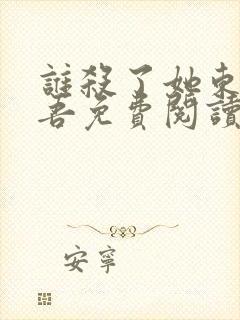 誰殺了她東
吾免費閱讀
安寧